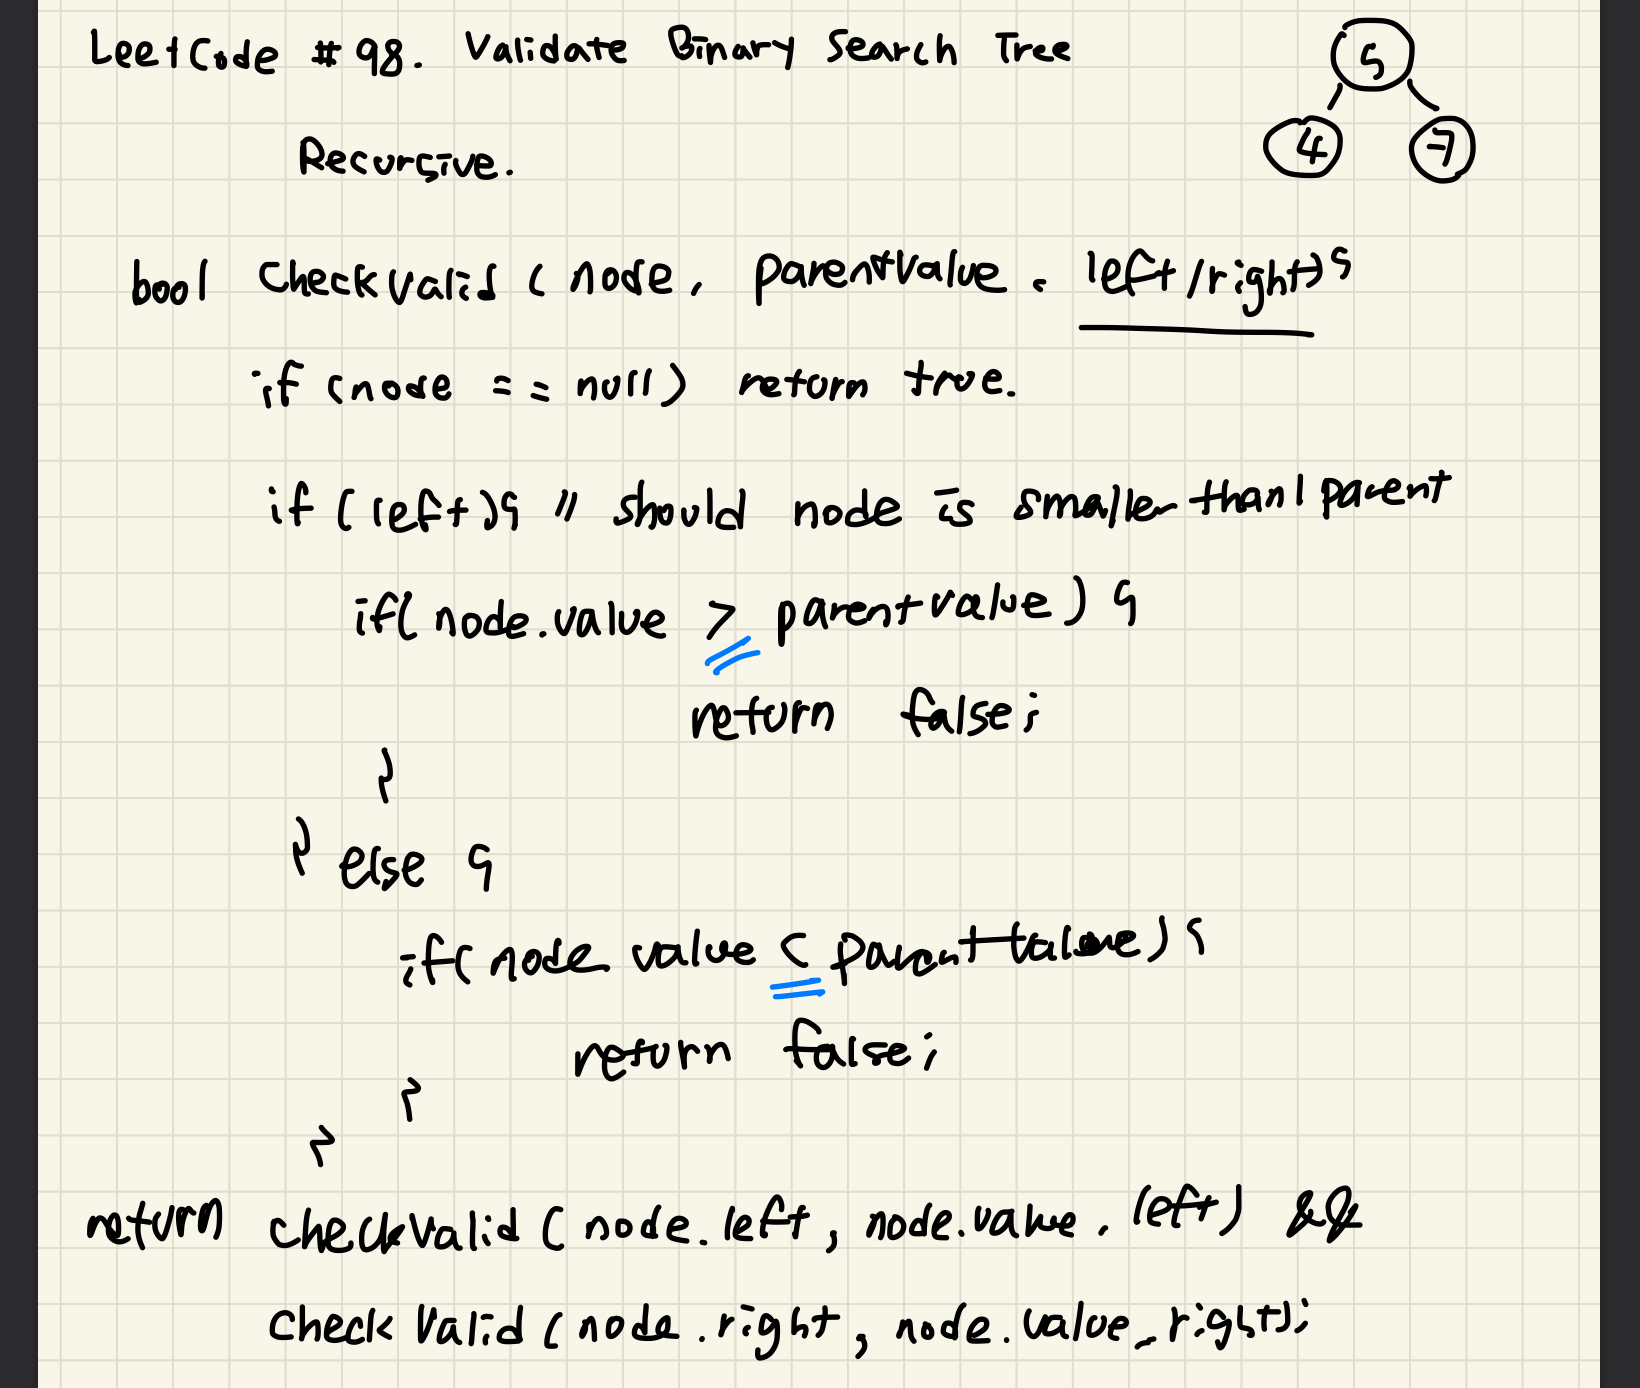 LeetCode #98. Validate Binary Search Tree
5
4 7
Recursive.
bool CheckValid (node, parentValue, left/right){
if (node == null) return true.
if (left){ // should node is smaller than parent
if( node.value > parentvalue) {
return false;
}
} else {
if( node value < parentvalue) {
return false;
}
}
return checkValid ( node.left, node.value, left) &&
check Valid (node.right, node.value, right);